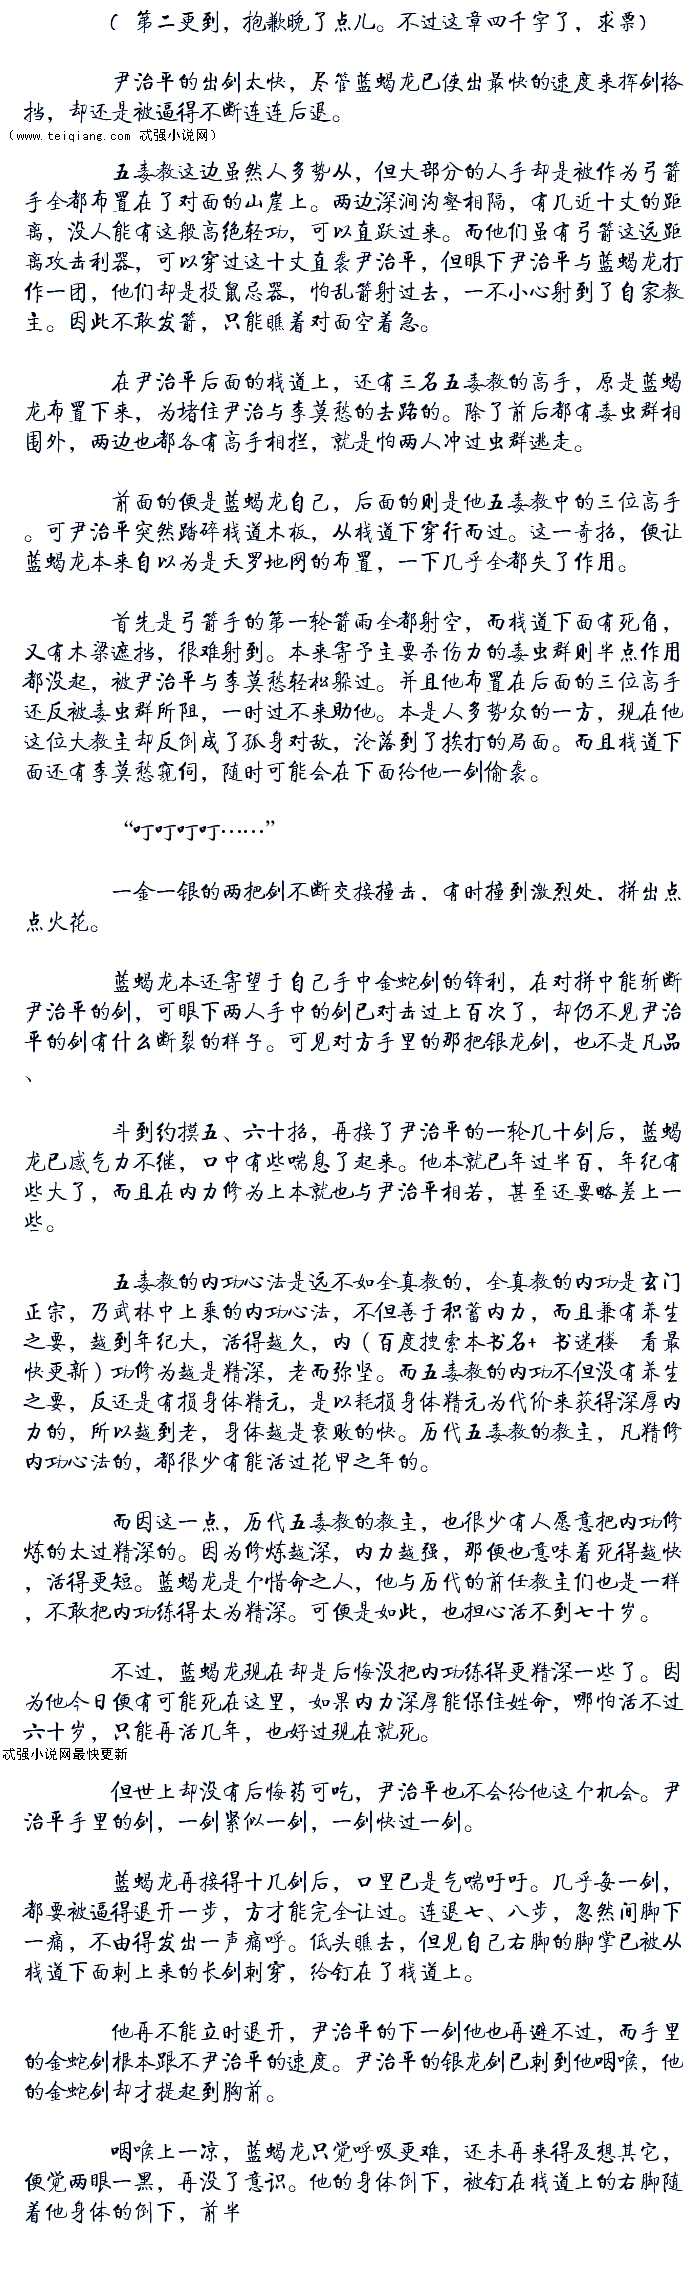 ( 第二更到，抱歉晚了点儿。不过这章四千字了，求票)
尹治平的出剑太快，尽管蓝蝎龙已使出最快的速度来挥剑格
挡，却还是被逼得不断连连后退。
(www.teiqiang.com 忒强小说网)
五毒教这边虽然人多势从，但大部分的人手却是被作为弓箭
手全都布置在了对面的山崖上。两边深涧沟壑相隔，有几近十丈的距
离，没人能有这般高绝轻功，可以直跃过来。而他们虽有弓箭这远距
离攻击利器，可以穿过这十丈直袭尹治平，但眼下尹治平与蓝蝎龙打
作一团，他们却是投鼠忌器，怕乱箭射过去，一不小心射到了自家教
主。因此不敢发箭，只能瞧着对面空着急。
在尹治平后面的栈道上，还有三名五毒教的高手，原是蓝蝎
龙布置下来，为堵住尹治与李莫愁的去路的。除了前后都有毒虫群相
围外，两边也都各有高手相拦，就是怕两人冲过虫群逃走。
前面的便是蓝蝎龙自己，后面的则是他五毒教中的三位高手
。可尹治平突然踏碎栈道木板，从栈道下穿行而过。这一奇招，便让
蓝蝎龙本来自以为是天罗地网的布置，一下几乎全都失了作用。
首先是弓箭手的第一轮箭雨全都射空，而栈道下面有死角，
又有木梁遮挡，很难射到。本来寄予主要杀伤力的毒虫群则半点作用
都没起，被尹治平与李莫愁轻松躲过。并且他布置在后面的三位高手
还反被毒虫群所阻，一时过不来助他。本是人多势众的一方，现在他
这位大教主却反倒成了孤身对敌，沦落到了挨打的局面。而且栈道下
面还有李莫愁窥伺，随时可能会在下面给他一剑偷袭。
“叮叮叮叮……”
一金一银的两把剑不断交接撞击，有时撞到激烈处，拼出点
点火花。
蓝蝎龙本还寄望于自己手中金蛇剑的锋利，在对拼中能斩断
尹治平的剑，可眼下两人手中的剑已对击过上百次了，却仍不见尹治
平的剑有什么断裂的样子。可见对方手里的那把银龙剑，也不是凡品
、
斗到约摸五、六十招，再接了尹治平的一轮几十剑后，蓝蝎
龙已感气力不继，口中有些喘息了起来。他本就已年过半百，年纪有
些大了，而且在内力修为上本就也与尹治平相若，甚至还要略差上一
些。
五毒教的内功心法是远不如全真教的，全真教的内功是玄门
正宗，乃武林中上乘的内功心法，不但善于积蓄内力，而且兼有养生
之要，越到年纪大，活得越久，内（百度搜索本书名+ 书迷楼 看最
快更新）功修为越是精深，老而弥坚。而五毒教的内功不但没有养生
之要，反还是有损身体精元，是以耗损身体精元为代价来获得深厚内
力的，所以越到老，身体越是衰败的快。历代五毒教的教主，凡精修
内功心法的，都很少有能活过花甲之年的。
而因这一点，历代五毒教的教主，也很少有人愿意把内功修
炼的太过精深的。因为修炼越深，内力越强，那便也意味着死得越快
，活得更短。蓝蝎龙是个惜命之人，他与历代的前任教主们也是一样
，不敢把内功练得太为精深。可便是如此，也担心活不到七十岁。
不过，蓝蝎龙现在却是后悔没把内功练得更精深一些了。因
为他今日便有可能死在这里，如果内力深厚能保住姓命，哪怕活不过
六十岁，只能再活几年，也好过现在就死。
忒强小说网最快更新
但世上却没有后悔药可吃，尹治平也不会给他这个机会。尹
治平手里的剑，一剑紧似一剑，一剑快过一剑。
蓝蝎龙再接得十几剑后，口里已是气喘吁吁。几乎每一剑，
都要被逼得退开一步，方才能完全让过。连退七、八步，忽然间脚下
一痛，不由得发出一声痛呼。低头瞧去，但见自己右脚的脚掌已被从
栈道下面刺上来的长剑刺穿，给钉在了栈道上。
他再不能立时退开，尹治平的下一剑他也再避不过，而手里
的金蛇剑根本跟不尹治平的速度。尹治平的银龙剑已刺到他咽喉，他
的金蛇剑却才提起到胸前。
咽喉上一凉，蓝蝎龙只觉呼吸更难，还未再来得及想其它，
便觉两眼一黑，再没了意识。他的身体倒下，被钉在栈道上的右脚随
着他身体的倒下，前半